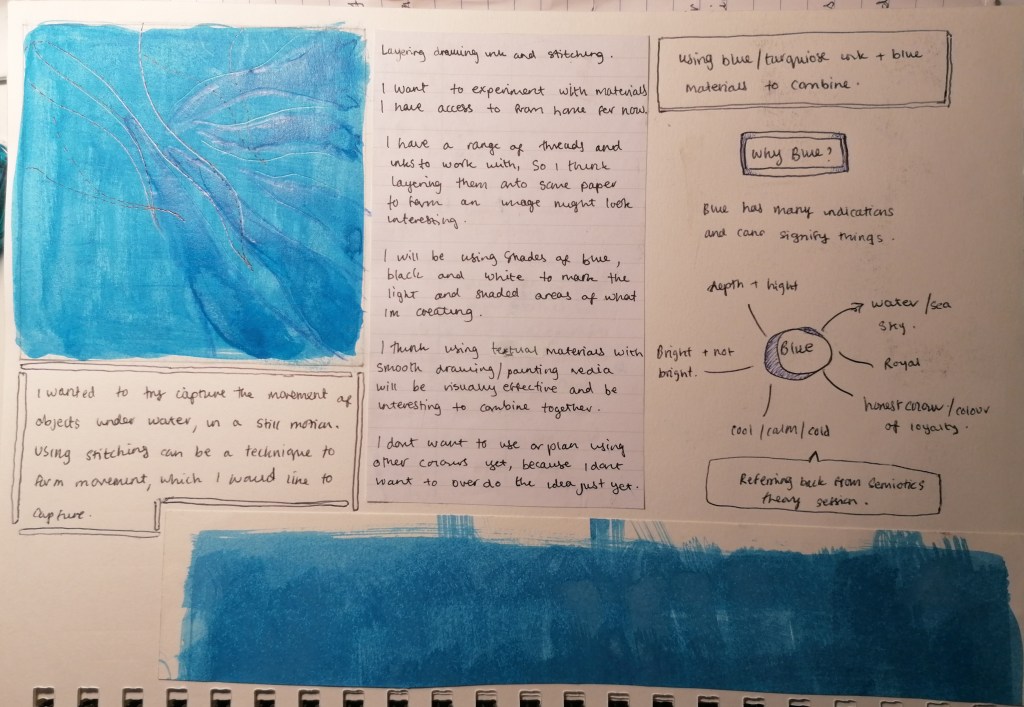 Layering drawing ink and stitching.
I want to experiment with materials
I have access to from home for now.
I have a range of threads and
inks to work with, so I think
layering them onto some paper
to form an image might look
interesting.
I will be using shades of blue,
black and white to mark the
light and shaded areas of what
im creating.
I think using textual materials with
smooth drawing/painting media
will be visually effective and be
interesting to combine together.
I dont want to use or plan using
other colours yet, because I dont
want to over do the idea just yet.
I wanted to try capture the movement of
objects under water, in a still motion.
Using stitching can be a technique to
form movement, which I would like to
capture.
using blue/turquoise ink + blue
materials to combine.
Why Blue?
Blue has many indications
and can signify things.
depth + hight
water/sea
sky.
Blue
Bright + not
bright.
Royal
honest colour/colour
of loyalty.
cool/calm/cold
Referring back from Semiotics
theory session.